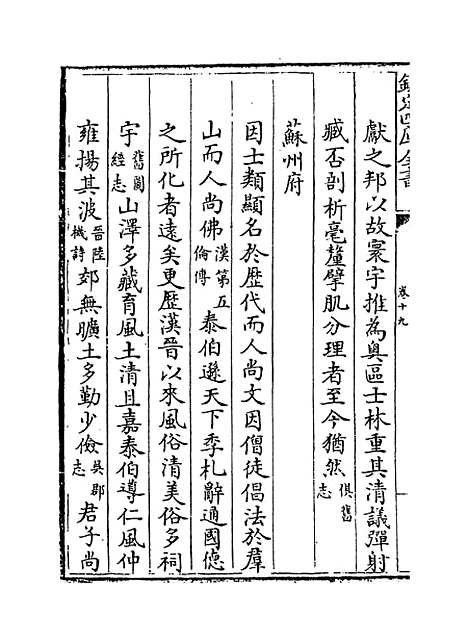 欽定四庫全書
卷十九
獻之邦以故寰宇推為奥區士林重其清議彈射
臧否剖析毫釐擘肌分理者至今猶然俱舊志
蘇州府
因士類顯名於歴代而人尚文因僧徒倡法於羣
山而人尚佛漢第五倫傳泰伯遜天下季札辭通國徳
之所化者遠矣更歴漢晉以來風俗清美俗多祠
宇舊圖經志山澤多藏育風土清且嘉泰伯導仁風仲
雍揚其波晉陸機詩郊無曠土多勤少儉吳郡志君子尚